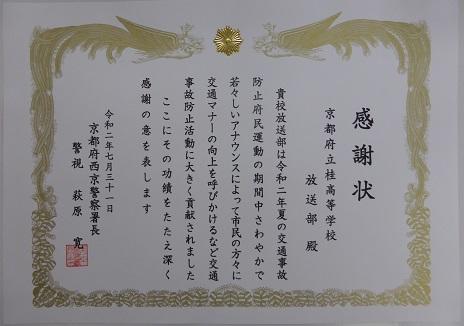 感謝状
京都府立桂高等学校
放送部 殿
貴校放送部は令和二年夏の交通事故
防止府民運動の期間中さわやかで
若々しいアナウンスによって市民の方々に
交通マナーの向上を呼びかけるなど交通
事故防止活動に大きく貢献されました
ここにその功績をたたえ深く
感謝の意を表します
令和二年七月三十一日
京都府西京警察署長
警視 萩原 寛